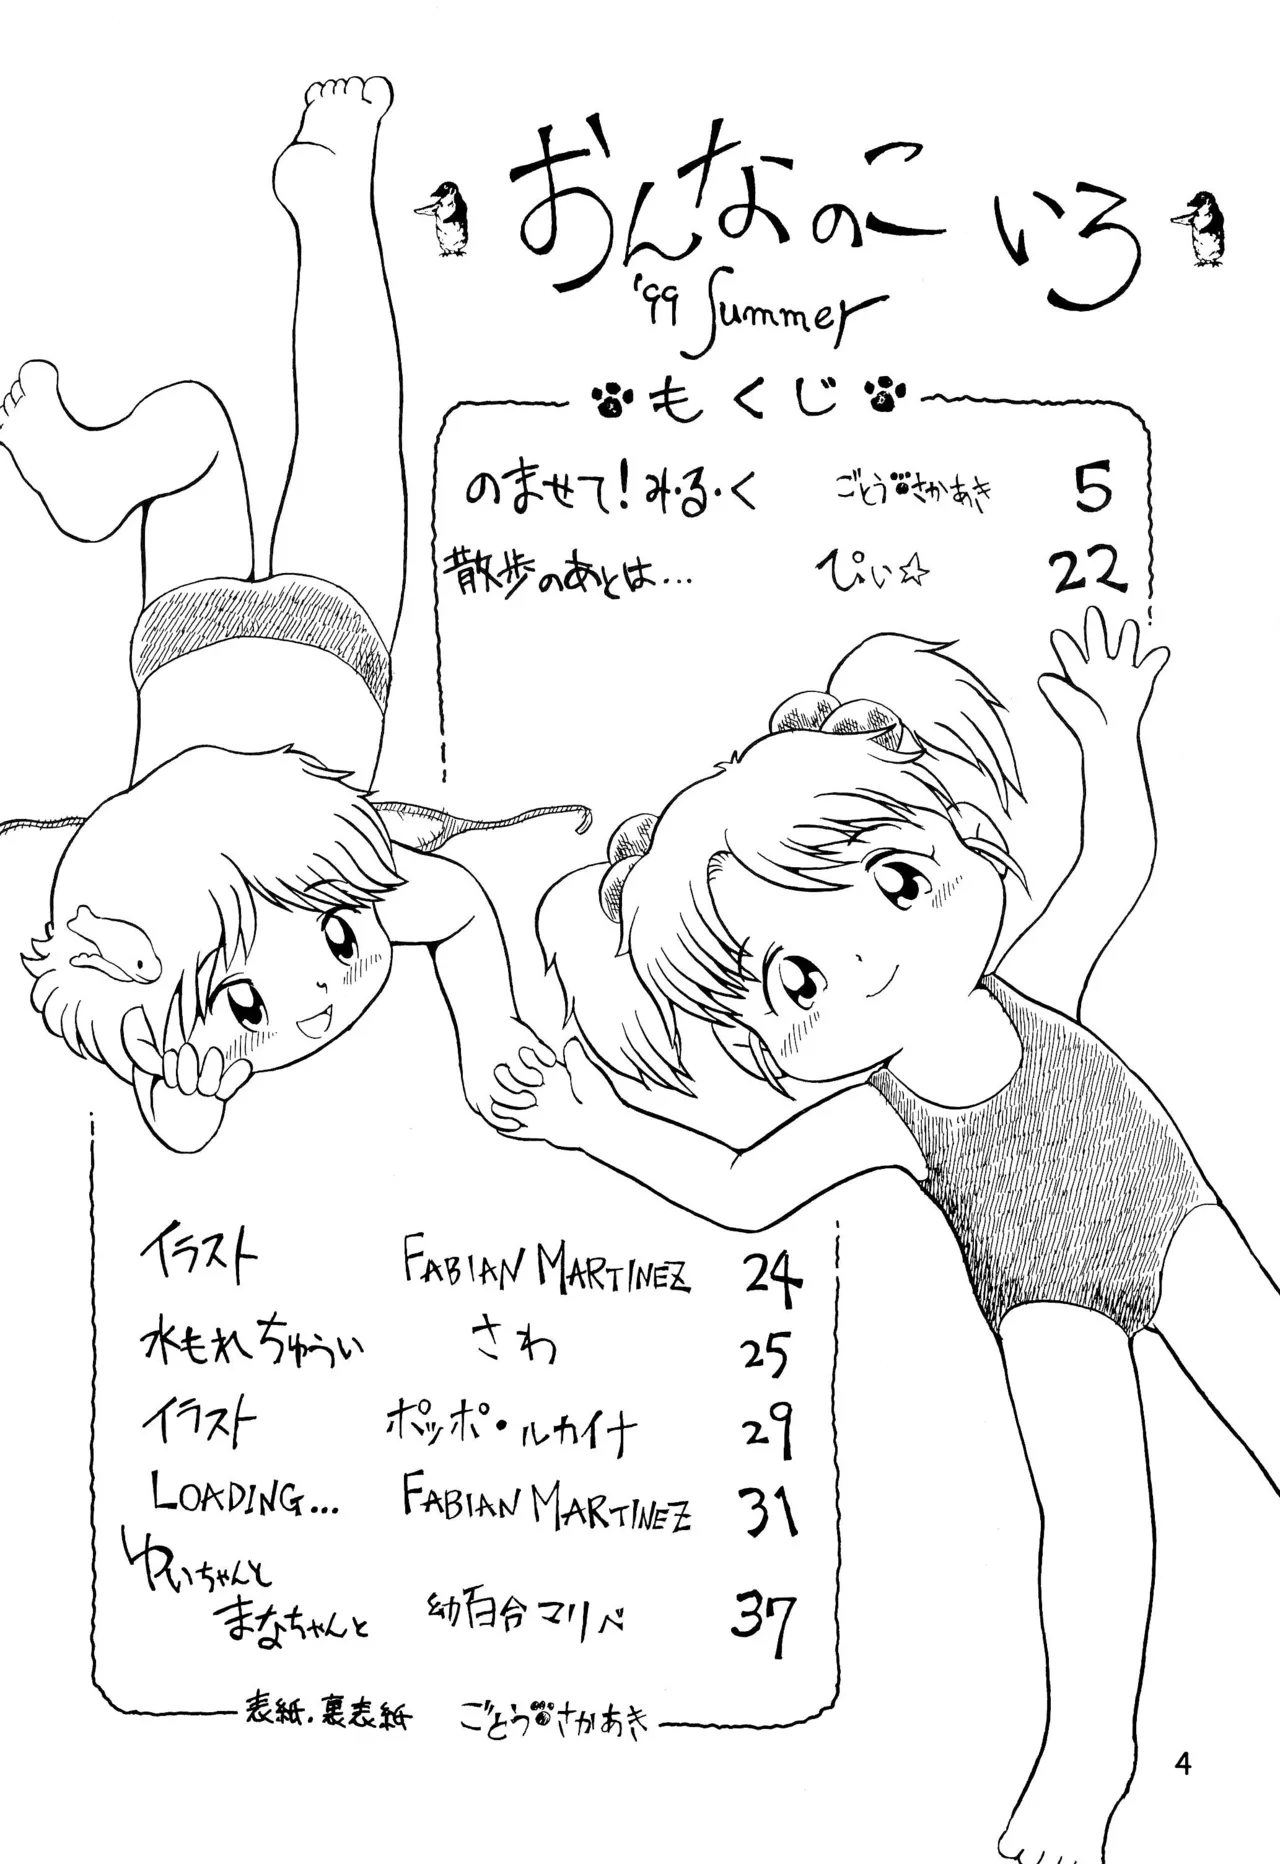 おんなのこ いろ
'99 Summer
もくじ
のませて！み・る・く ごとう さかあき 5
散歩のあとは… ぴぃ☆ 22
イラスト FABIAN MARTINEZ 24
水もれちゅうい さわ 25
イラスト ポッポ・ルカイナ 29
LOADING... FABIAN MARTINEZ 31
ゆいちゃんと
まなちゃんと 幼百合マリベ 37
表紙．裏表紙 ごとう さかあき
4